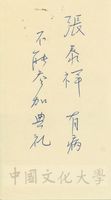 張泰祥 有病
不能参加典礼
中國文化大學